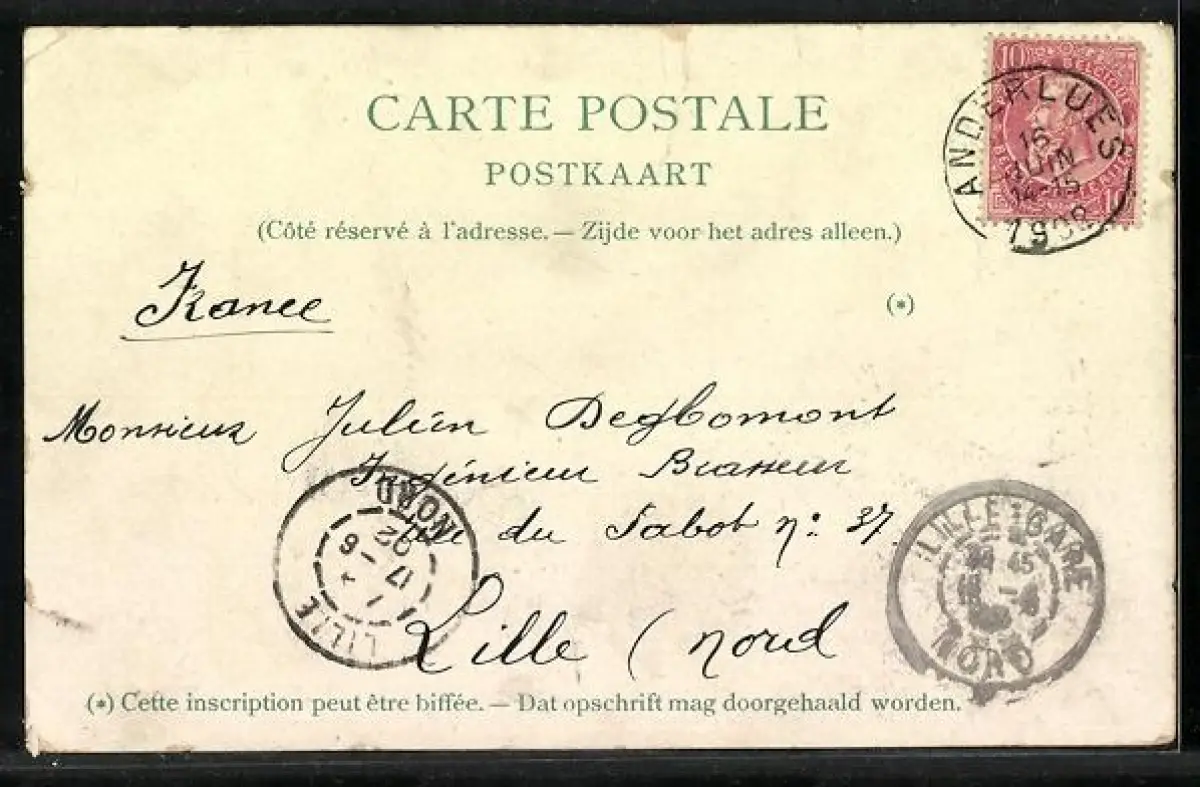 CARTE POSTALE
POSTKAART
(Côté réservé à l'adresse. — Zijde voor het adres alleen.)
10
BELGIQUE
ANDERLUES
16
JUIN
1902
France
(*)
Monsieur Julien Degbomont
Ingénieur Brasseur
Rue du Sabot nº 37.
Lille (nord
LILLE
NORD
17 - 6
02
LILLE-GARE
45
NORD
(*) Cette inscription peut être biffée. — Dat opschrift mag doorgehaald worden.